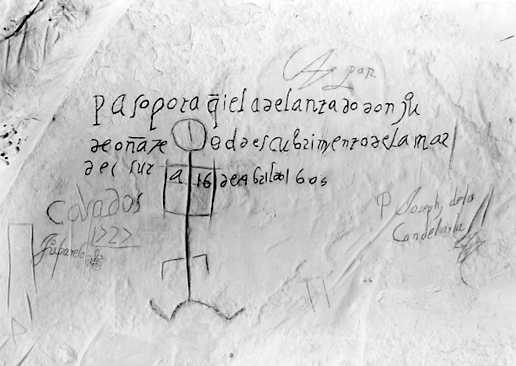 pasopora q̃i el adelantado don ju
de oñate descubrimento de la mar
del sur a 16 de Abril 1605
par
Cosados
1727
P Joseph de la
Candelaria